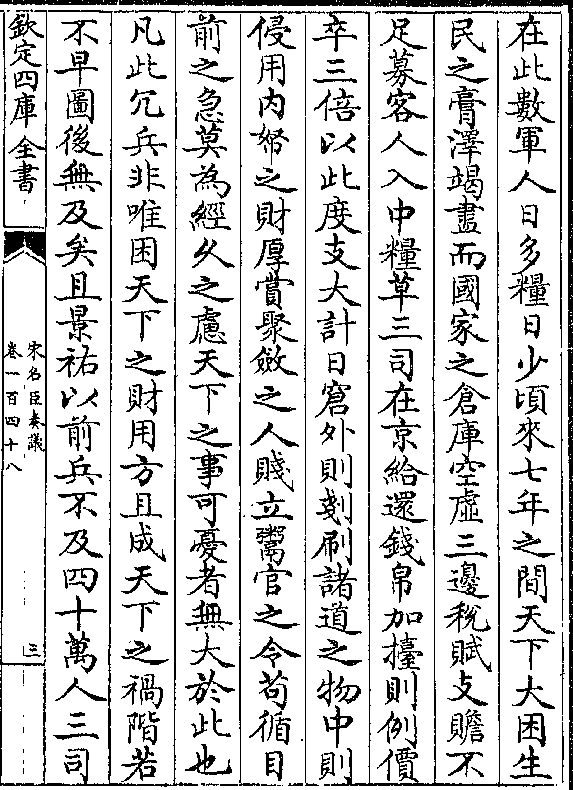 在此數軍人日多糧日少頃來七年之間天下大困生
民之膏澤竭盡而國家之倉庫空虛三邊稅賦支贍不
足募客人入中糧草三司在京給還錢帛加擡則例價
卒三倍以此度支大計日窘外則剗刷諸道之物中則
侵用内帑之財厚賞聚斂之人賤立鬻官之令苟循目
前之急莫為經久之慮天下之事可憂者無大於此也
凡此冗兵非唯困天下之財用方且成天下之禍階若
不早圖後無及矣且景祐以前兵不及四十萬人三司
欽定四庫全書
宋名臣奏議
卷一百四十八
三